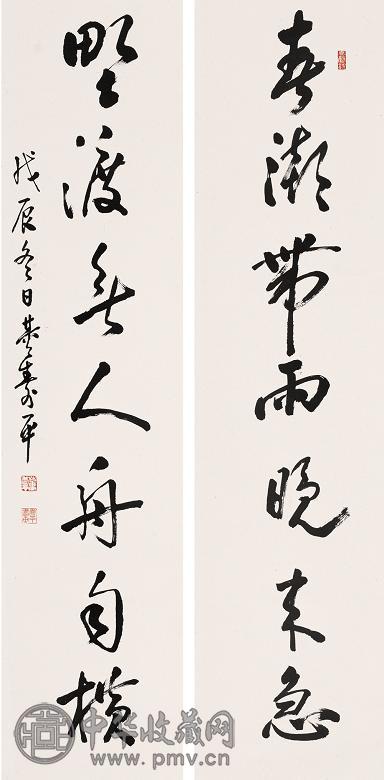 春潮帶雨晚来急
野渡無人舟自横
戊辰冬日董壽平
中华收藏网
www.pmv.cn